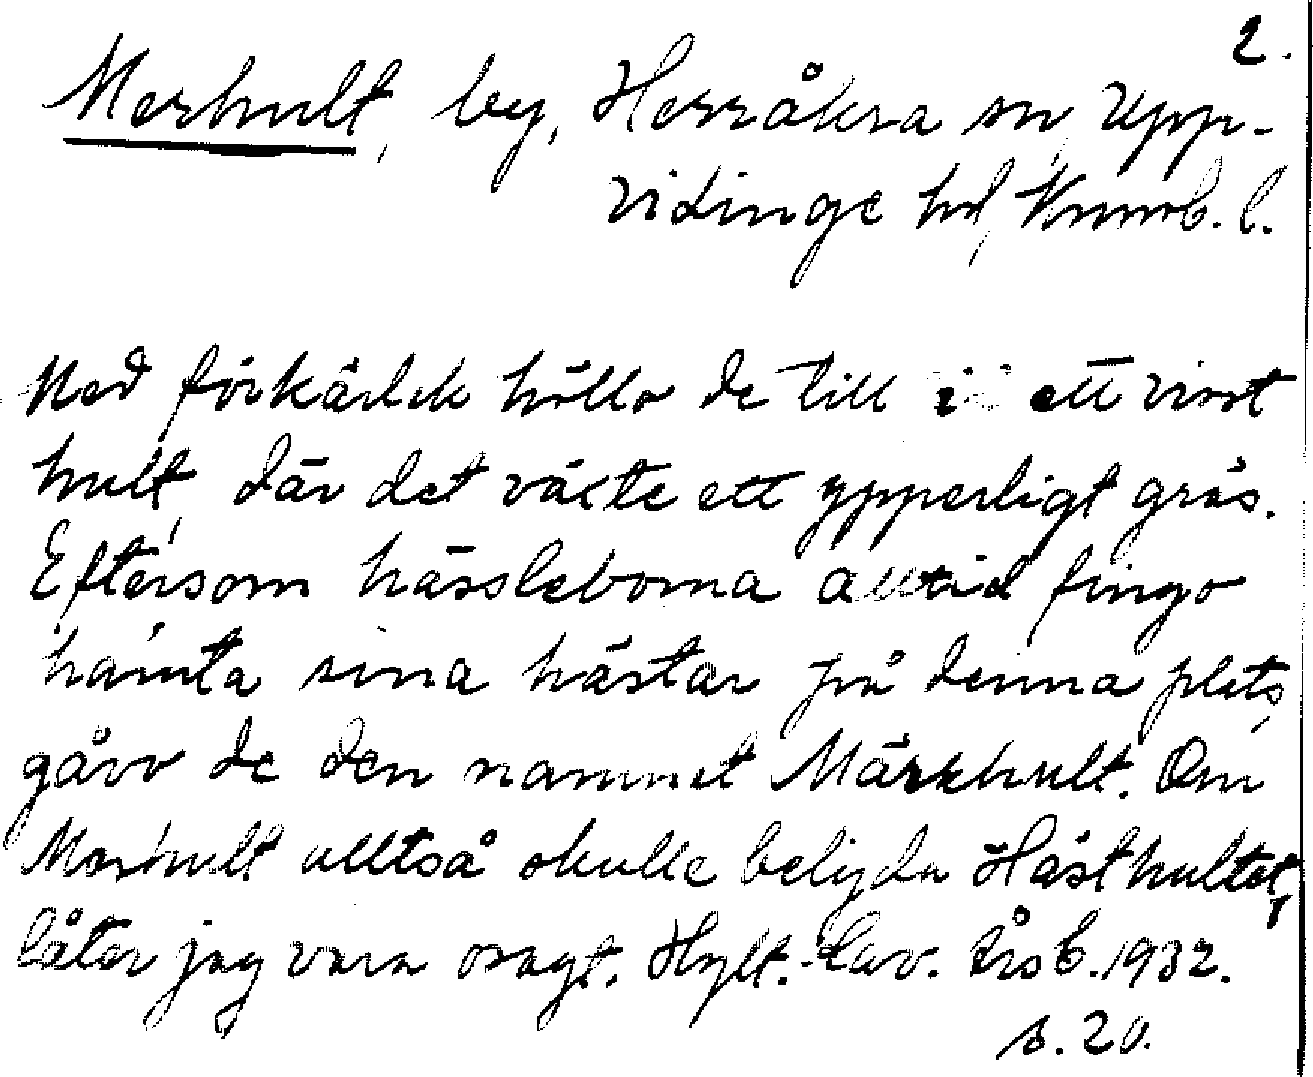 2.
Merhult, by, Herråkra sn, Upp-
vidinge hd, Kronob. l.
Med förkärlek höllo de till i ett visst
hult, där det växte ett ypperligt gräs.
Eftersom hässleborna alltid fingo
hämta sina hästar på denna plats,
gåvo de den namnet Märrhult. Om
Merhult alltså skulle betyda Hästhultet,
låter jag vara osagt. Hylt.-Cav. Årsb. 1932.
s. 20.